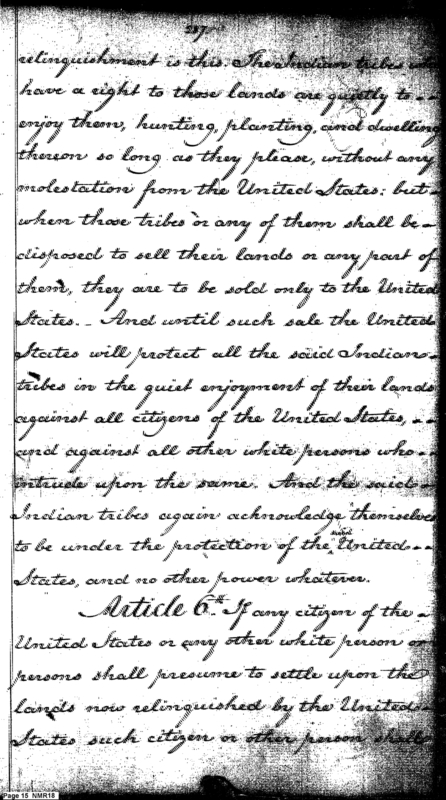 237
relinquishment is this. The Indian tribes who
have a right to those lands are quietly to
enjoy them, hunting, planting, and dwelling
thereon so long as they please, without any
molestation from the United States: but
when those tribes or any of them shall be
disposed to sell their lands or any part of
them, they are to be sold only to the United
States. - And until such sale the United
States will protect all the said Indian
tribes in the quiet enjoyment of their lands
against all citizens of the United States,
and against all other white persons who
intrude upon the same. And the said
Indian tribes again acknowledge themselves
to be under the protection of the said United
States, and no other power whatever.
Article 6th. If any citizen of the
United States or any other white person or
persons shall presume to settle upon the
lands now relinquished by the United
States such citizen or other person shall
Page 15 NMR18